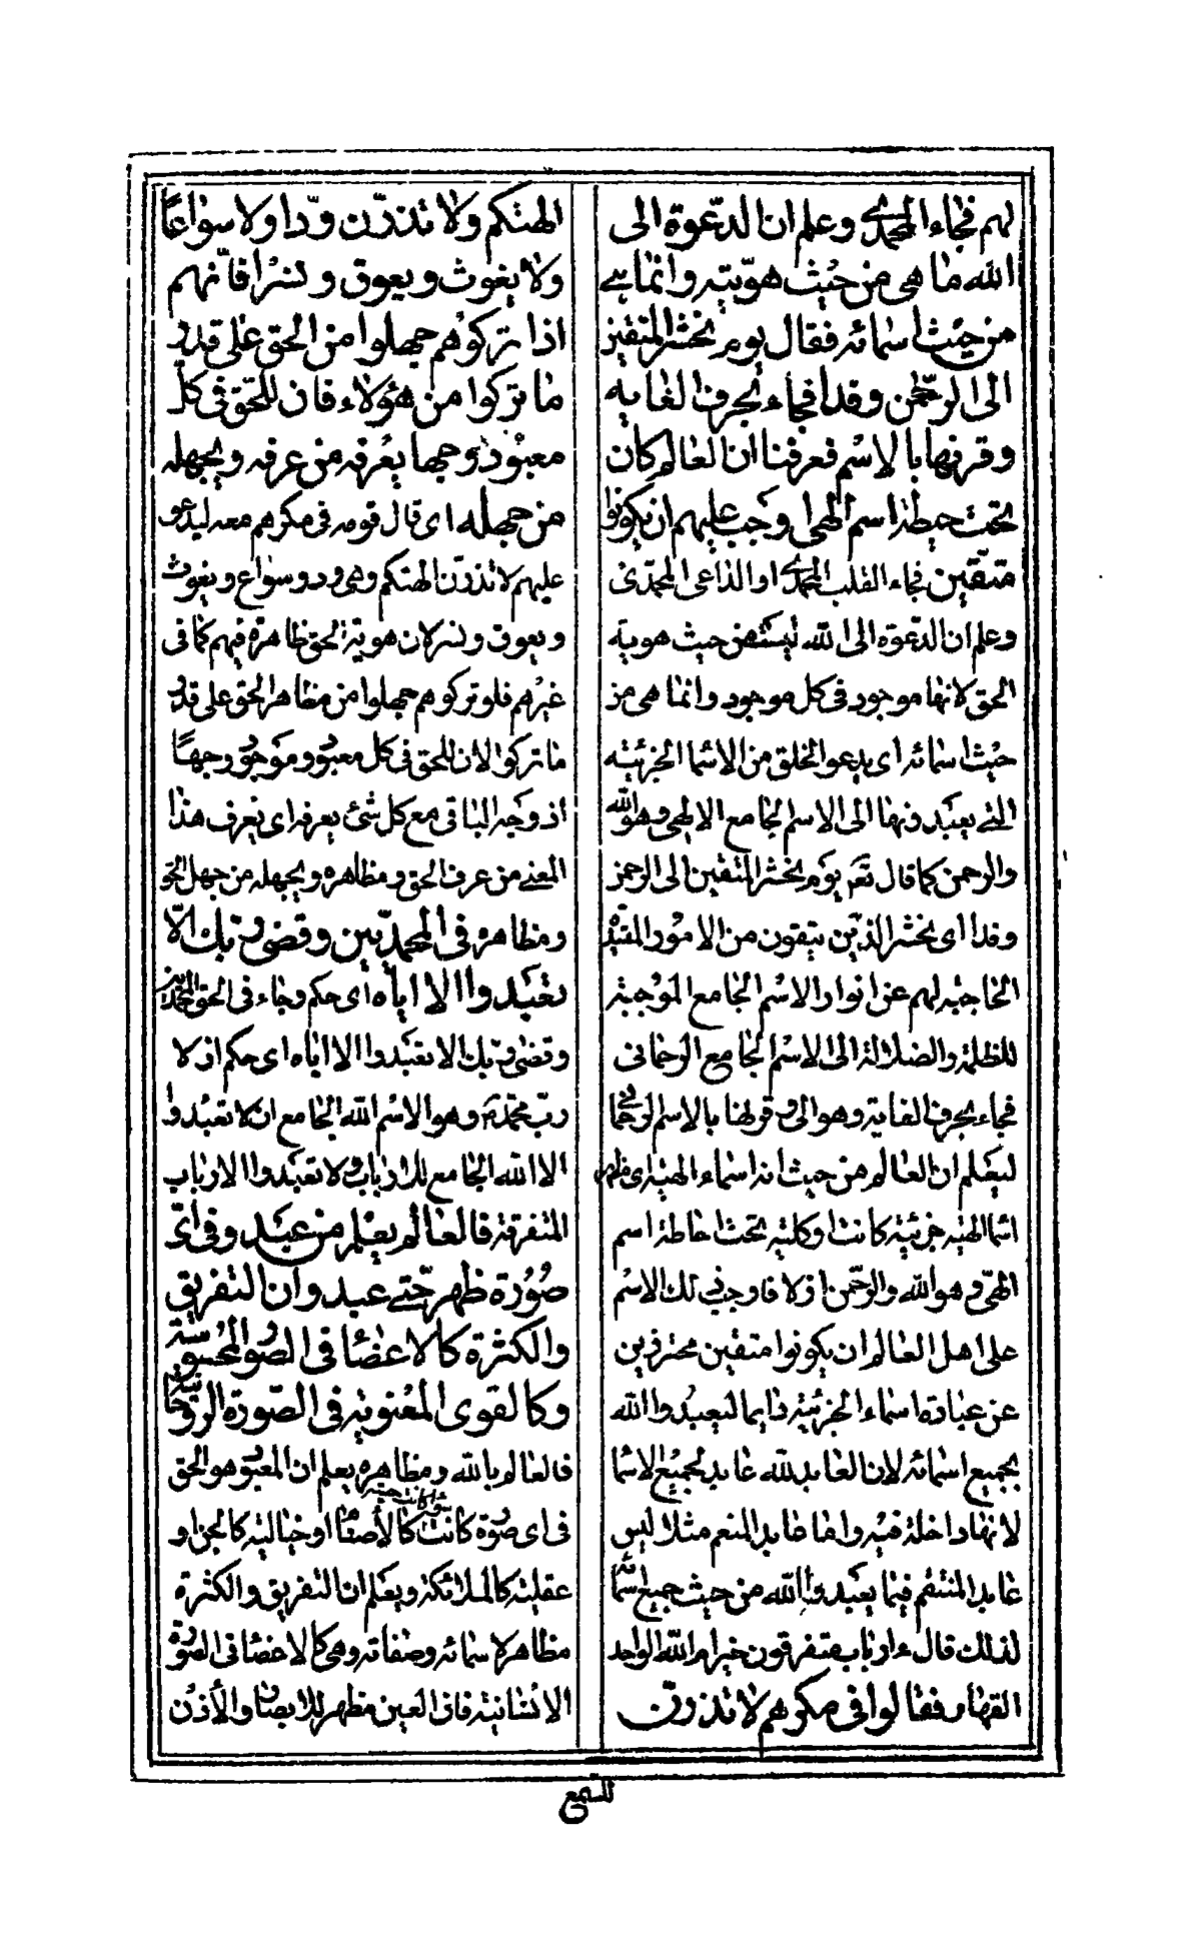 لهم فجاء المحمدي وعلم ان الدعوة الى
الله ما هى من حيث هويته وانما هي
من حيث اسمائه فقال يوم نحشر المتقين
الى الرحمن وفدا فجاء بحرف الغاية
وقرنها بالاسم فعرفنا ان العالم كان
تحت حيطة اسم الهى اوجب عليهم ان يكونوا
متقين فجاء القلب المحمدي او الداعى المحمدى
وعلم ان الدعوة الى الله ليست من حيث هوية
الحق لانها موجود فى كل موجود وانما هى من
حيث اسمائه اى يدعو الخلق من الاسما الجزئية
التي يعبدونها الى الاسم الجامع الالهى وهو الله
والرحمن كما قال تعم يوم نحشر المتقين الى الرحمن
وفدا اى نحشر الذين يتقون من الامور المقيدة
الحاجبة لهم عن انوار الاسم الجامع الموجبة
للظلمة والضلالة الى الاسم الجامع الرحمانى
فجاء بحرف الغاية وهو الى وقرنها بالاسم الرحمانى
ليعلم ان العالم من حيث انه اسماء الهية اى مظهر
اسما الهية جزئية كانت او كلية تحت احاطة اسم
الهى وهو الله والرحمن اولا فاوجب ذلك الاسم
على اهل العالم ان يكونوا متقين محترزين
عن عبادة اسماء الجزئية دايما ليعبدوا الله
بجميع اسمائه لان العابد لله عابد لجميع الاسما
لانها داخلة فيه واما عابد المنعم مثلا ليس
عابد المنتقم فيما يعبدوا الله من حيث جميع اسمائه
لذلك قال ءارباب متفرقون خير ام الله الواحد
القهار فقالوا فى مكرهم لا تذرن
الهتكم ولا تذرن ودا ولا سواعا
ولا يغوث ويعوق ونسرا فانهم
اذا تركوهم جهلوا من الحق على قدر
ما تركوا من هؤلاء فان للحق فى كل
معبود وجها يعرفه من عرفه ويجهله
من جهله اى قال قومه فى مكرهم معه ليدعو
عليهم لا تذرن الهتكم وهى ود وسواع ويغوث
ويعوق ونسر لان هوية الحق ظاهرة فيهم كما فى
غيرهم فلو تركوهم جهلوا من مظاهر الحق على قدر
ما تركوا لان للحق فى كل معبود وموجود وجها
اذ وجه الباقى مع كل شئ يعرفه اى يعرف هذا
المعني من عرف الحق ومظاهره ويجهله من جهل الحق
ومظاهره فى المحمديين وقضى ربك الا
تعبدوا الا اياه اى حكم وجاء فى الحق المحمديين
وقضى ربك الا تعبدوا الا اياه اى حكم ازلا
رب محمد وهو الاسم الله الجامع ان لا تعبدوا
الا الله الجامع للارباب ولا تعبدوا الارباب
المتفرقة فالعالم يعلم من عبد وفى اى
صورة ظهر حتى عبد وان التفريق
والكثرة كالاعضا فى الصور المحسوسة
وكالقوى المعنوية فى الصورة الروحانية
فالعالم بالله ومظاهره يعلم ان المعبود هو الحق
فى اى صورة كانت سواء كانت حسية كالأصنام او خيالية كالجن او
عقلية كالملائكة ويعلم ان التفريق والكثرة
مظاهر لاسمائه وصفاته وهى كالاعضا فى الصورة
الانسانية فان العين مظهر للابصار والأذن
للسمع